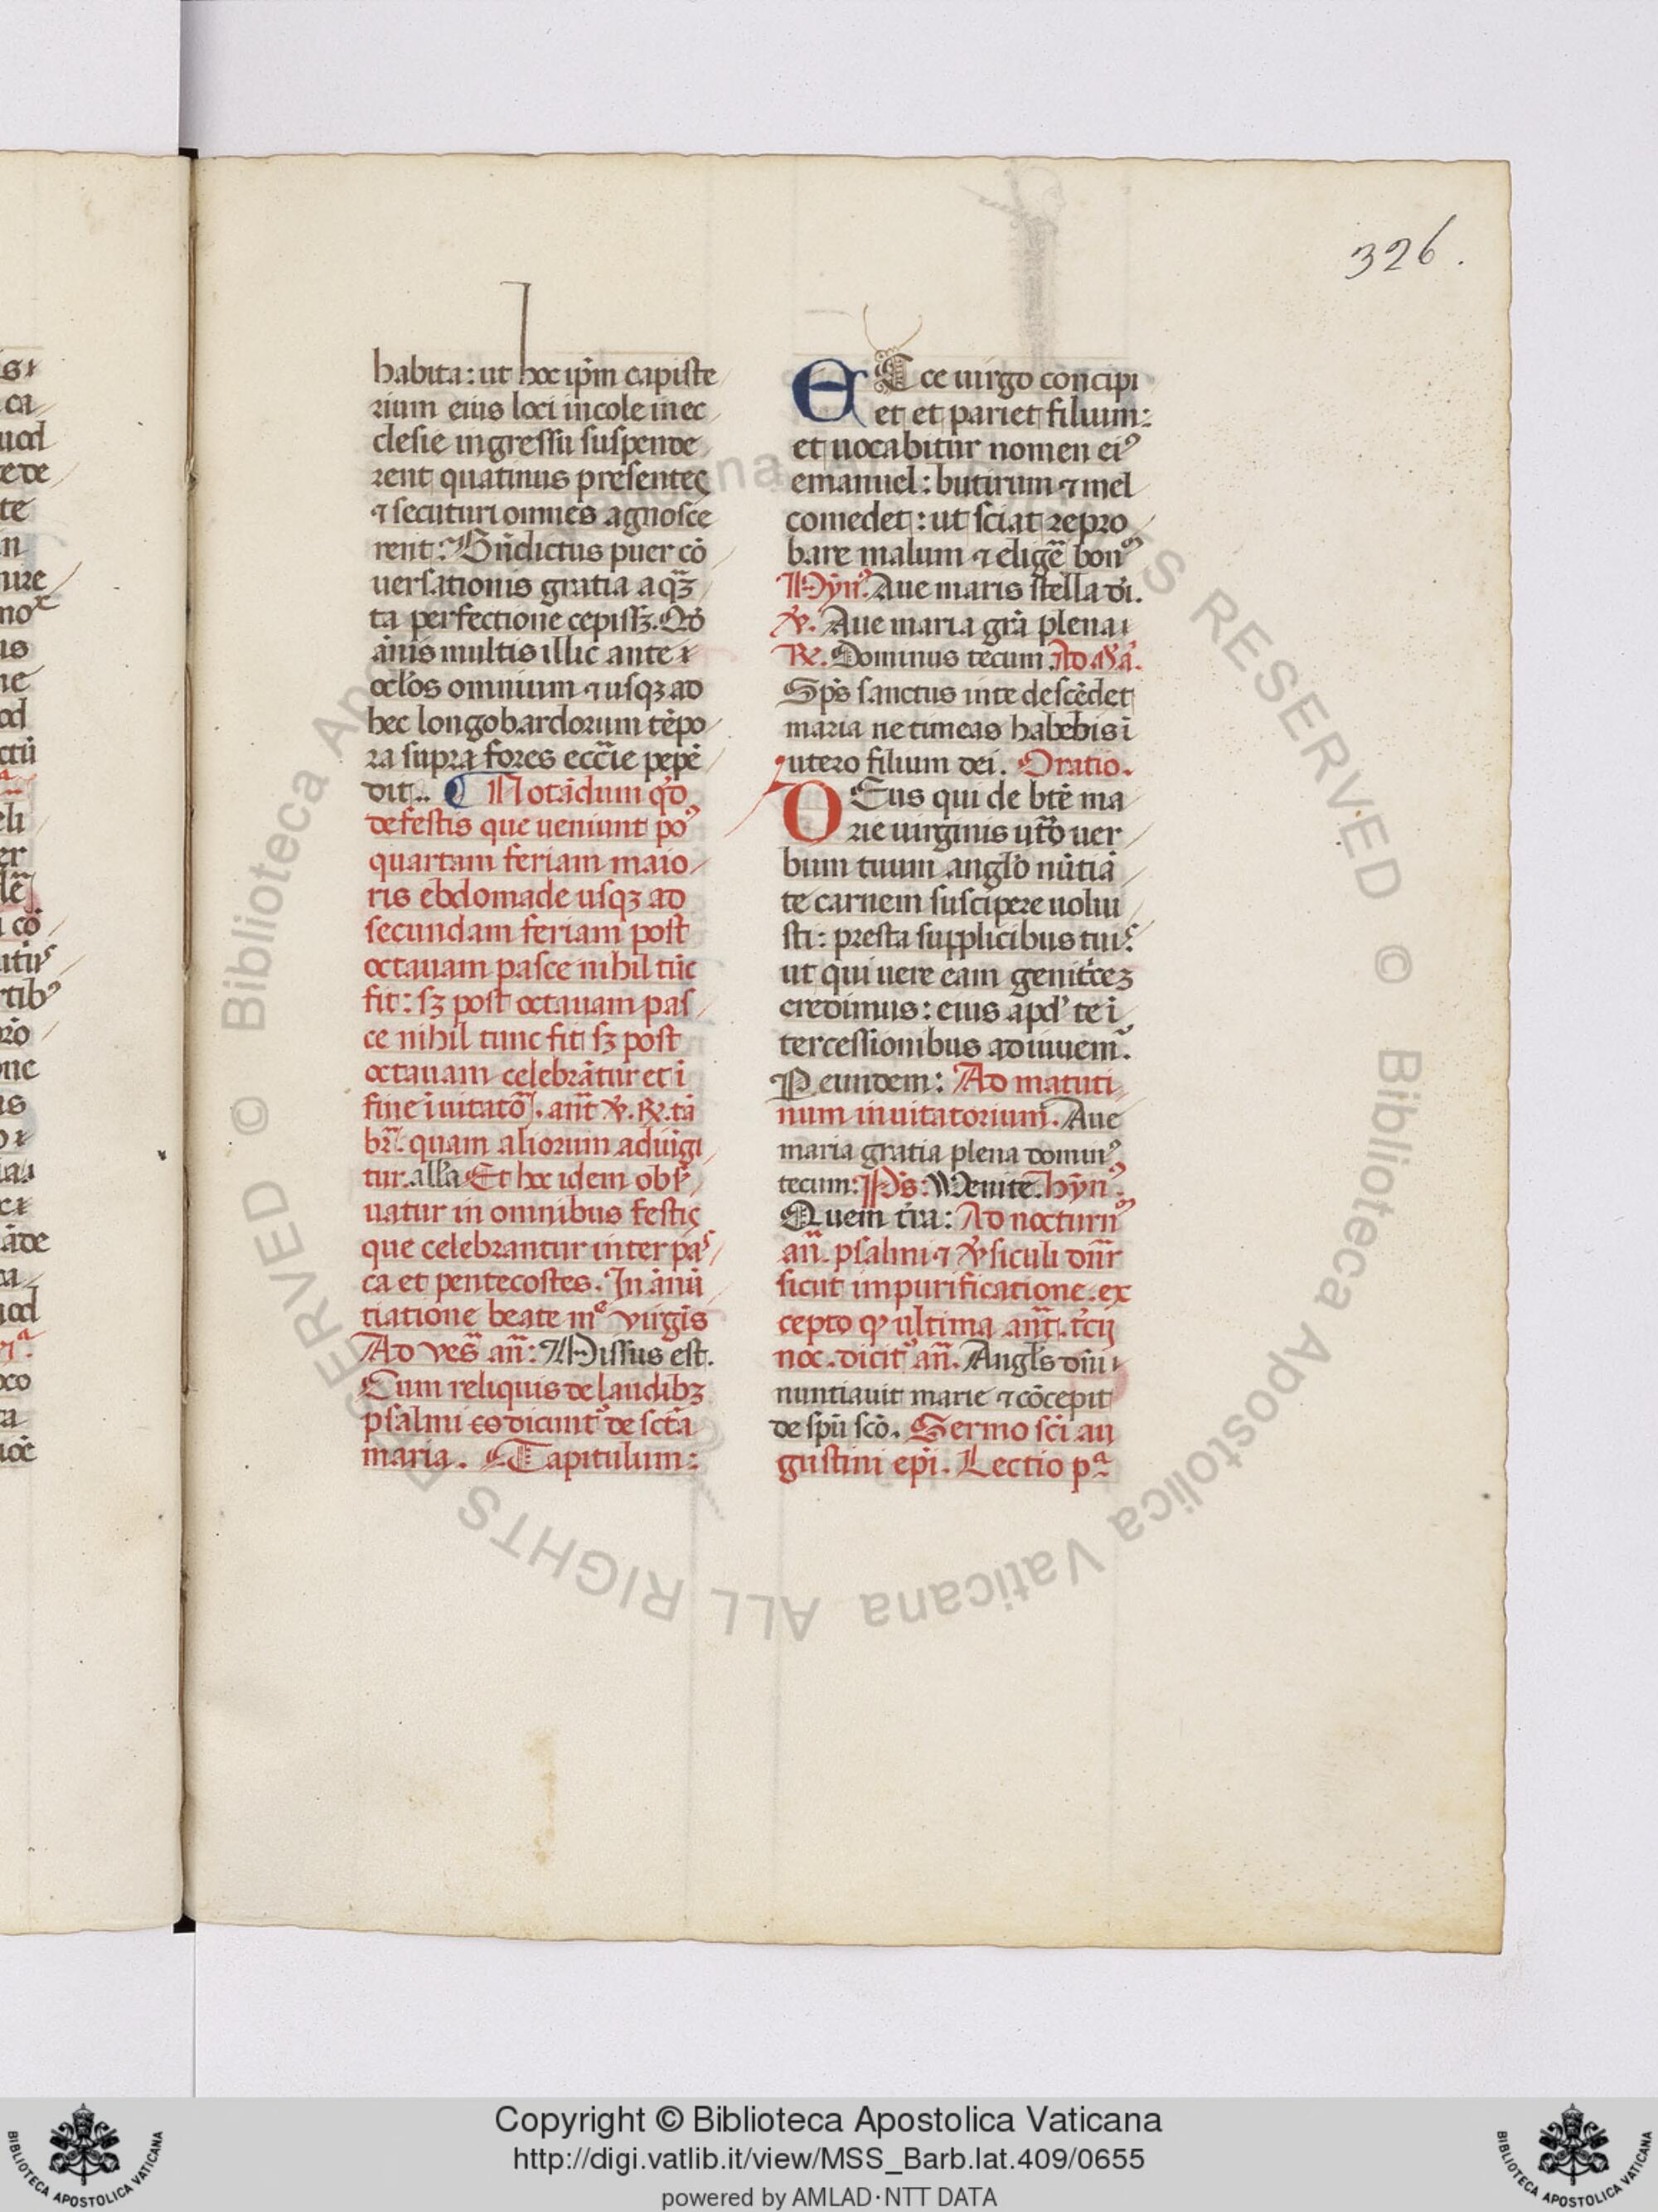 326.
habita: ut hoc ip̄m capiste
rium eius loci incole in ec
clesie ingressu suspende
rent quatinus presentes
⁊ secuturi omnes agnosce
rent: Bn̄dictus puer cō
uersationis gratia a q̄ꝫ
ta perfectione cepissꝫ. Qd̄
ānis multis illic ante
oclōs omnium ⁊ usqꝫ ad
hec longobardorum tēpo
ra supra fores ecc̄ie pepē
dit.. ¶ Notādum qd̓
de festis que ueniunt po⁹
quartam feriam maio
ris ebdomade usqꝫ ad
secundam feriam post
octauam pasce nihil tūc
fit: sꝫ post octauam pas
ce nihil tunc fit sꝫ post
octauam celebrātur et ī
fine īuitatō℣. an̄t ℣. ℟. tā
br̄. quam aliorum adiūgi
tur. all̄a Et hoc idem obs̓
uatur in omnibus festis
que celebrantur inter pas
ca et pentecostes. In ānū
tiatione beate mͤ virgīs
Ad ves̄ an̄: Missus est.
Cum reliquis de laudibꝫ
psalmi eo dicunt᷑ de sctā
maria. Capitulum:
ECce uirgo concipi
et et pariet filium:
et uocabitur nomen ei⁹
emanuel: butirum ⁊ mel
comedet: ut sciat repro
bare malum ⁊ eligē̄ bonꝰ
Hȳn̄. Aue maris stella di.
℣. Aue maria grā plena
℟. Dominus tecum. Ad Mā.
Sp̄s sanctus in te descēdet
maria ne timeas habebis ī
utero filium dei. Oratio.
DEus qui de btē ma
rie uirginis utr̄o uer
bum tuum anglo nūtiā
te carnem suscipere uolui
sti: presta supplicibus tuis
ut qui uere eam genitͥceꝫ
credimus: eius apd̓ te ī
tercessionibus adiuuem᷑.
P eundem: Ad matuti
num inuitatorium. Aue
maria gratia plena domin⁹
tecum: Ps̄: Venite. hȳn⁹.
Quem tr̄a: Ad nocturn⁹
an̄. psalmi ⁊ ℣siculi dn̄r
sicut in purificatione. ex
cepto ꝙ ultima an̄t. tͨcij
noc. dicit᷑ an̄. Angl̄s dn̄i
nuntiauit marie ⁊ cōcepit
de spū scō. Sermo sci au
gustini ep̄i. Lectio pͣ
© Biblioteca Apostolica Vaticana ALL RIGHTS RESERVED
© Biblioteca Apostolica Vaticana ALL RIGHTS RESERVED
Copyright © Biblioteca Apostolica Vaticana
http://digi.vatlib.it/view/MSS_Barb.lat.409/0655
powered by AMLAD·NTT DATA
BIBLIOTECA APOSTOLICA VATICANA
BIBLIOTECA APOSTOLICA VATICANA